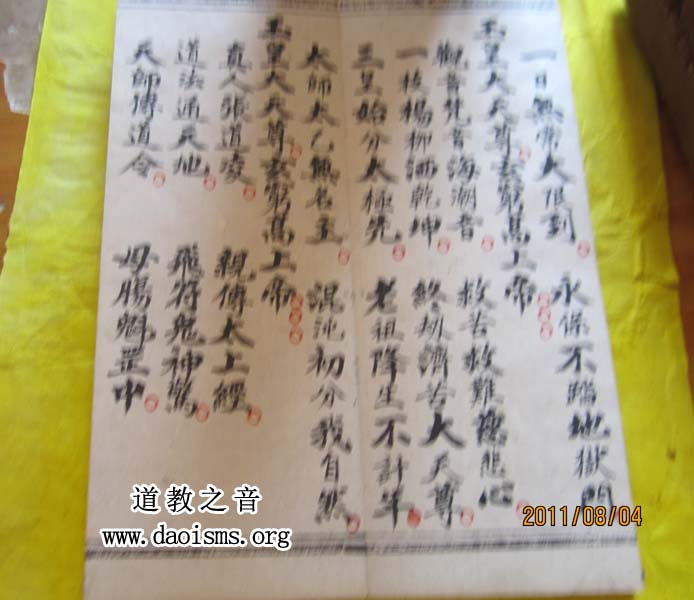 一日無常大限到 永保不踏地獄門
玉皇大天尊玄穹高上帝
觀音梵音海潮音 救苦救難慈悲心
一枝楊柳洒乾坤 終劫濟苦大天尊
三皇始分太極先 老祖降生不計年
太師太乙無名主 混沌初分我自然
玉皇大天尊玄穹高上帝
真人張道凌 親傳太上經
道法通天地 飛符鬼神驚
天師傳道令 魁罡中
道教之音
www.daoisms.org
2011/08/04